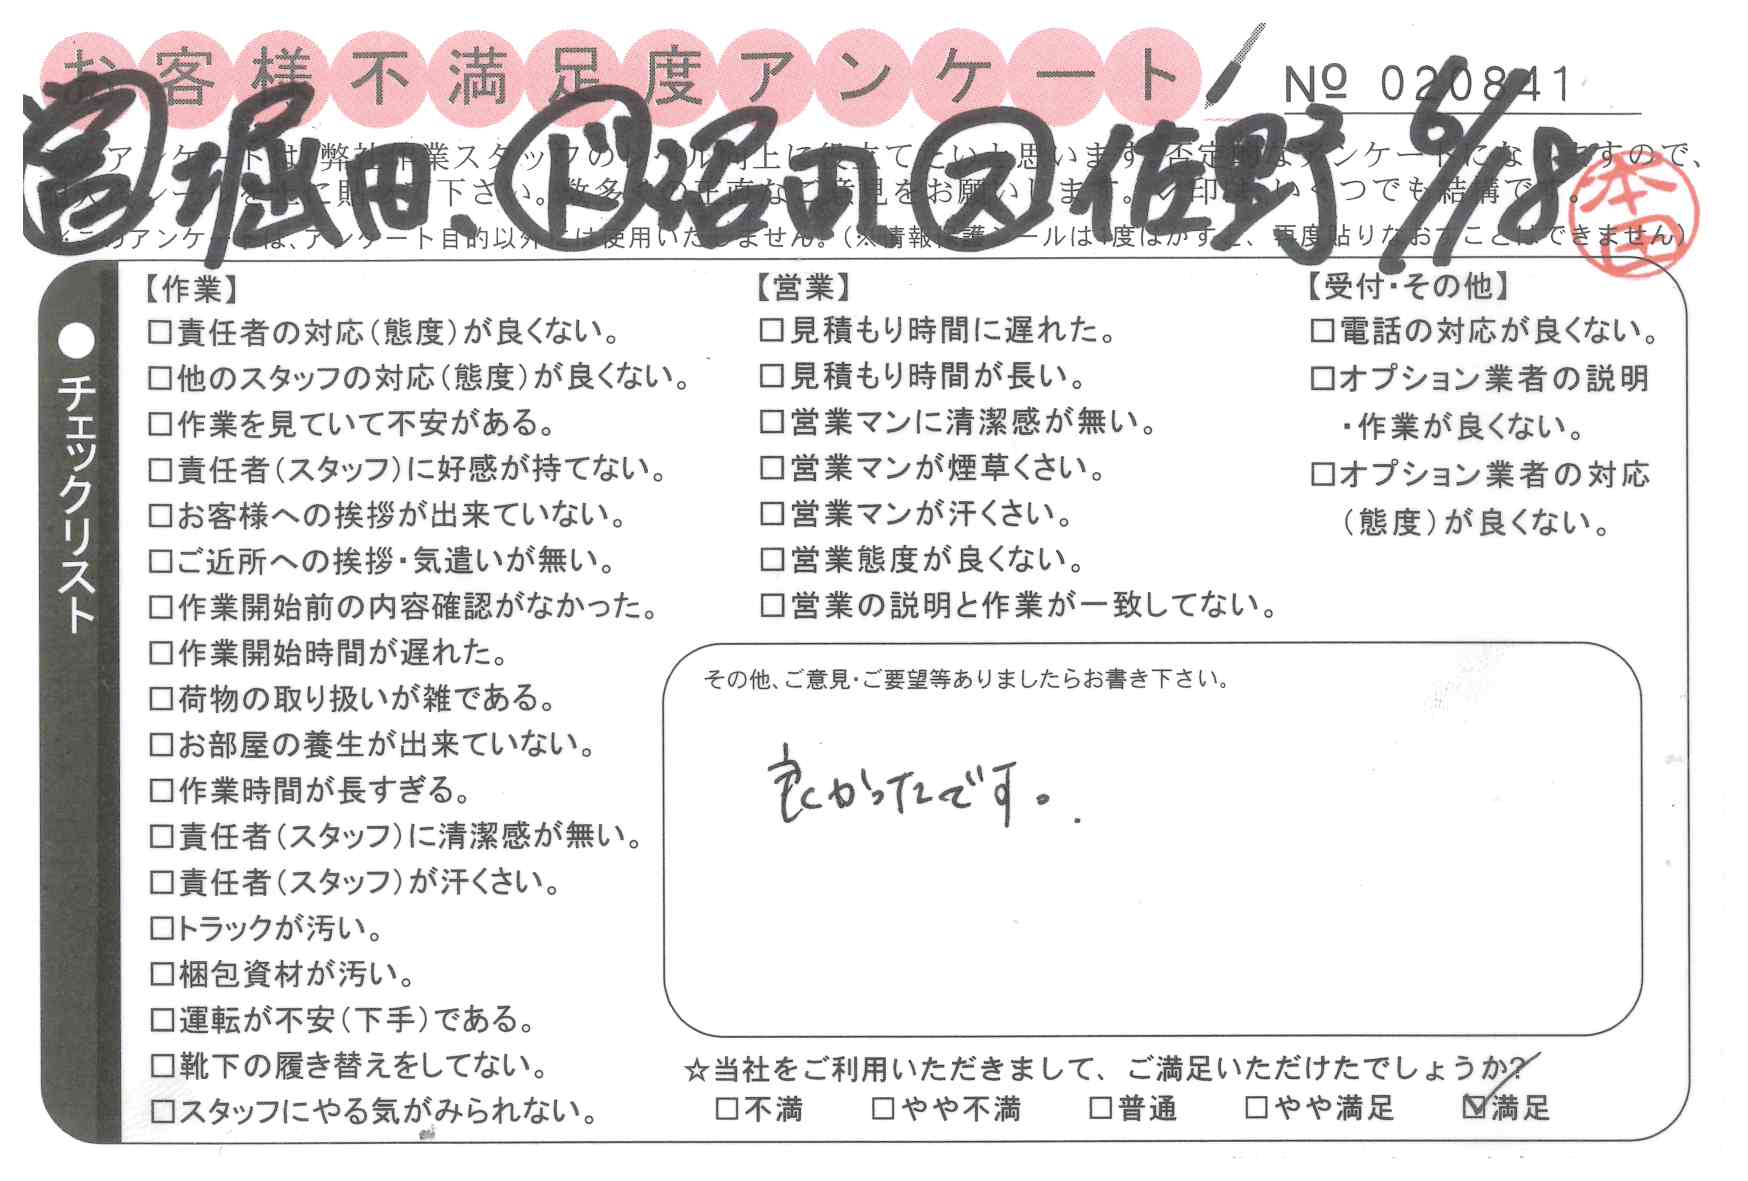 お客様不満足度アンケート
№ 020841
営 堀田、ド 沼田 ス 佐野 6/18
本田
※このアンケートは、アンケート目的以外には使用いたしません。
●チェックリスト
【作業】
□責任者の対応(態度)が良くない。
□他のスタッフの対応(態度)が良くない。
□作業を見ていて不安がある。
□責任者(スタッフ)に好感が持てない。
□お客様への挨拶が出来ていない。
□ご近所への挨拶・気遣いが無い。
□作業開始前の内容確認がなかった。
□作業開始時間が遅れた。
□荷物の取り扱いが雑である。
□お部屋の養生が出来ていない。
□作業時間が長すぎる。
□責任者(スタッフ)に清潔感が無い。
□責任者(スタッフ)が汗くさい。
□トラックが汚い。
□梱包資材が汚い。
□運転が不安(下手)である。
□靴下の履き替えをしてない。
□スタッフにやる気がみられない。
【営業】
□見積もり時間に遅れた。
□見積もり時間が長い。
□営業マンに清潔感が無い。
□営業マンが煙草くさい。
□営業マンが汗くさい。
□営業態度が良くない。
□営業の説明と作業が一致してない。
【受付・その他】
□電話の対応が良くない。
□オプション業者の説明
・作業が良くない。
□オプション業者の対応
(態度)が良くない。
その他、ご意見・ご要望等ありましたらお書き下さい。
良かったです。
☆当社をご利用いただきまして、ご満足いただけたでしょうか?
□不満 □やや不満 □普通 □やや満足 ☑満足